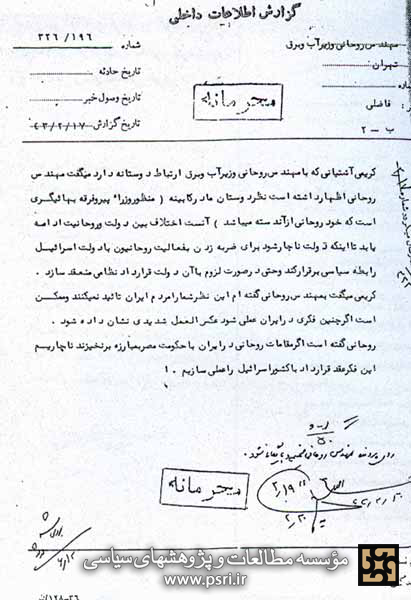 گزارش اطلاعات داخلی
مهندس روحانی وزیر آب وبرق
شماره ۳۲۶/۱۹۶
تهران
تاریخ حادثه
محرمانه
تاریخ وصول خبر
فاضلی
تاریخ گزارش ۴۳/۲/۱۷
ب - ۲
کریمی آشتیانی که بامهندس روحانی وزیر آب وبرق ارتباط دوستانه دارد میگفت مهندس
روحانی اظهارداشته است نظردوستان مادرکابینه ( منظوروزراء پیروفرقه بهائیگری
است که خود روحانی ازآندسته میباشد ) آنست اختلاف بین دولت وروحانیت ادامه
یابد تااینکه دولت ناچارشود برای ضربه زدن بفعالیت روحانیون بادولت اسرائیل
رابطه سیاسی برقرارکند وحتی درصورت لزوم باآن دولت قرارداد نظامی منعقد سازد .
کریمی میگفت بمهندس روحانی گفته ام این نظرشمارامردم ایران تائید نمیکنند وممکن
است اگرچنین فکری درایران عملی شود عکس العمل شدیدی نشان داده شود .
روحانی گفته است اگرمقامات روحانی درایران باحکومت مصربمبارزه برنخیزند ناچاریم
این فکرعقد قرارداد باکشوراسرائیل راعملی سازیم . !
محرمانه
۲/۱۹
۲/۲۰
مؤسسه مطالعات و پژوهشهای سیاسی
www.psri.ir